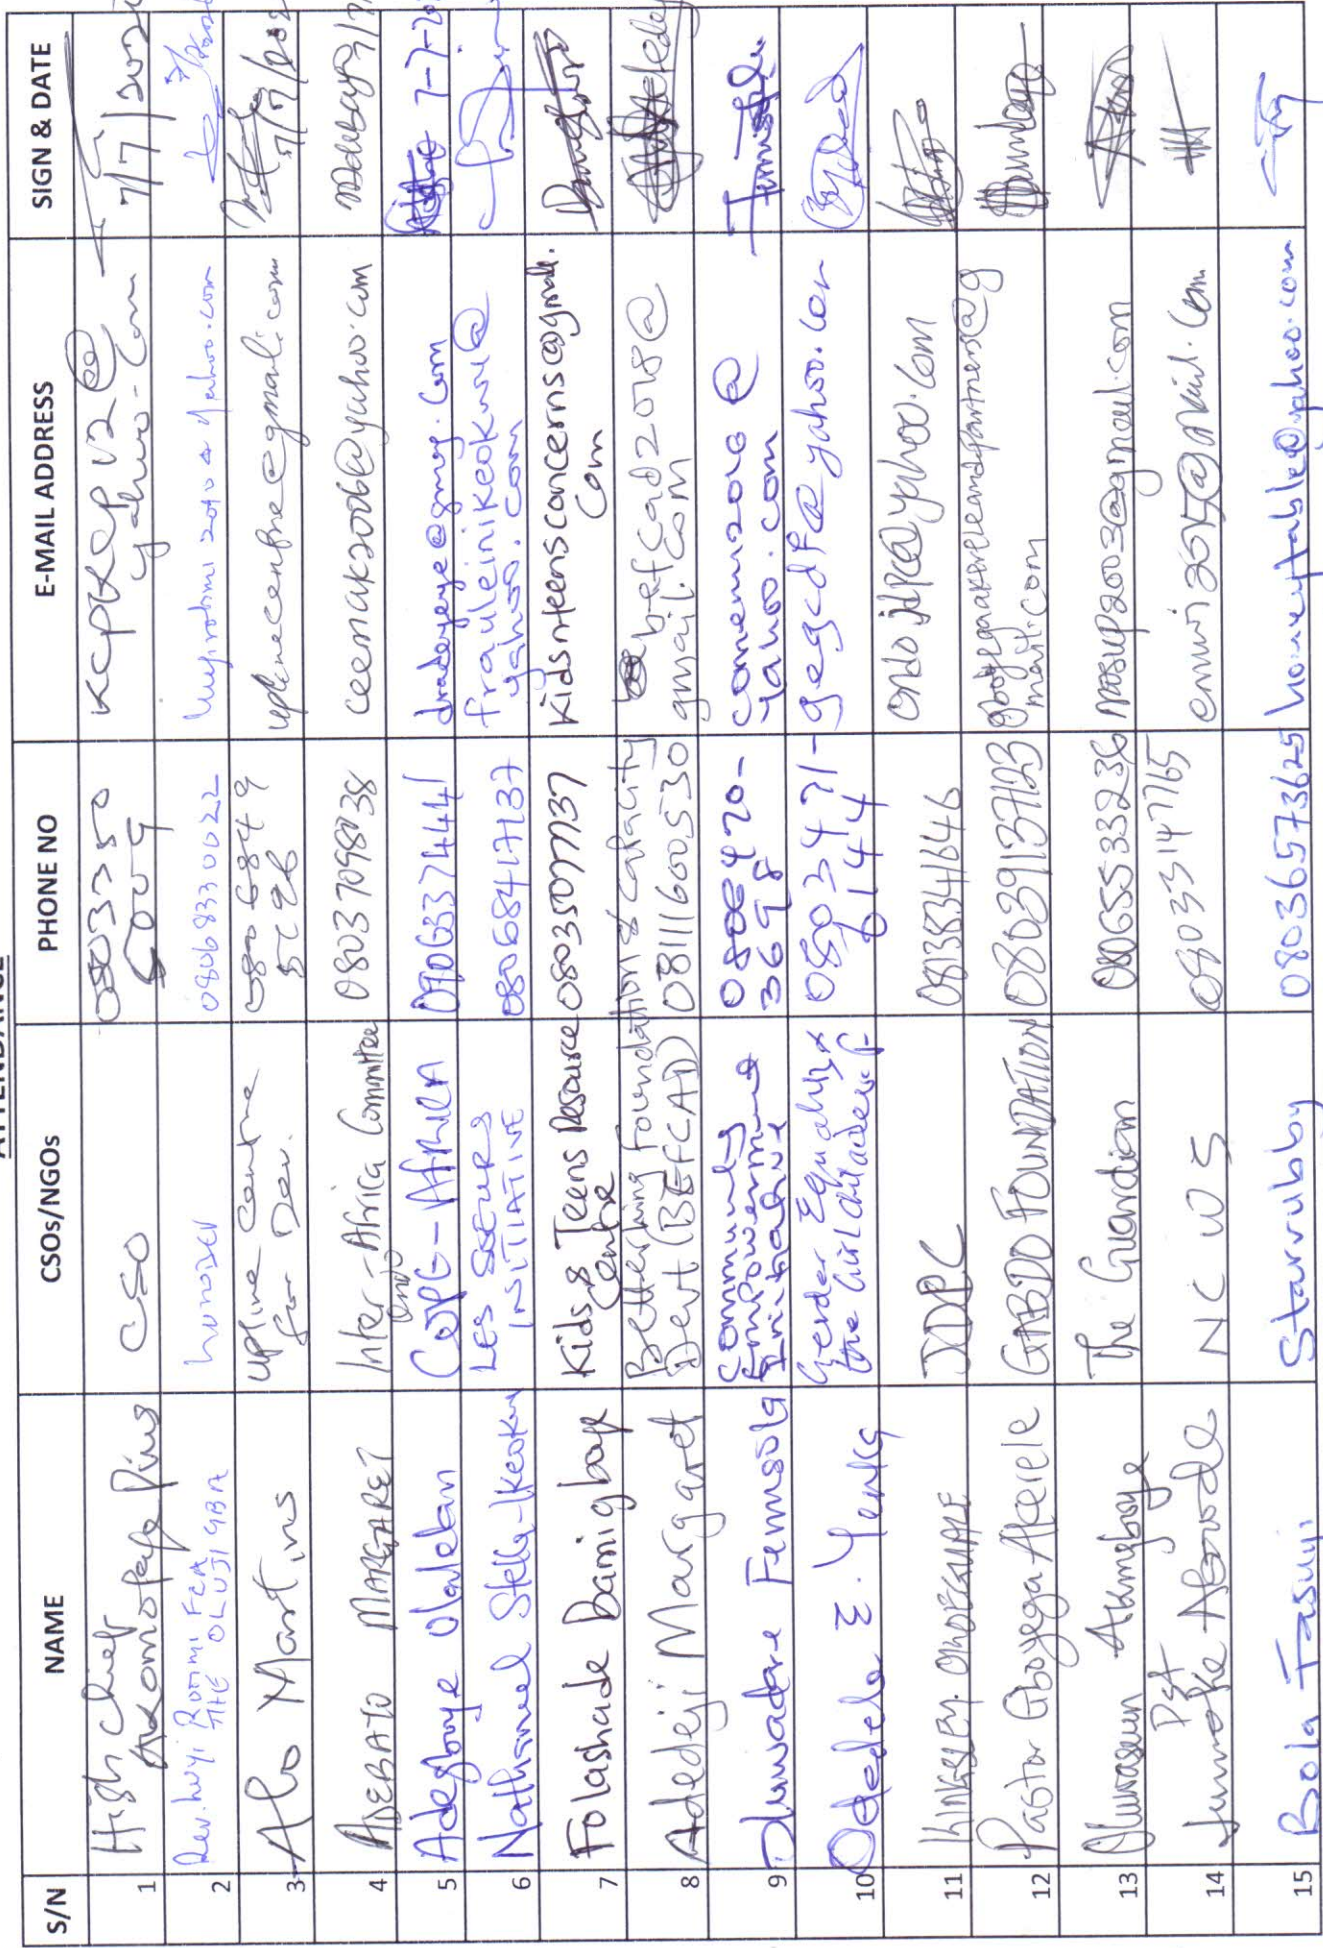 ATTENDANCE
S/N NAME CSOs/NGOs PHONE NO E-MAIL ADDRESS SIGN & DATE
1 High Chief Akomolafe Pius CSO 0803350 5009 7/7/202
2 Rev. Luyi Rotimi FCA THE OLUJIGBA 08068330022 luyirotimi2010@yahoo.com
3 Alo Martins Upline Centre for Dev. 0806849 5C96 uplinecentre@gmail.com 7/7/202
4 ADEBAYO MARGARET Inter-Africa Committee Ondo 08037098038 ceemak2006@yahoo.com
5 Adegboye Olalekan CWPG-AFRICA 09063374441 7-7-20
6 Nathaniel Stella-Ikeokwu LES SOEURS INITIATIVE 08068417137 frauleinikeokwu@ yahoo.com
7 Folashade Bamigboye Kids & Teens Resource Centre 08035077137 kidsnteensconcerns@gmail. com
8 Adedeji Margaret Bettering Foundation & Capacity Devt (BEFCAD) 08111600530 befcad2018@ gmail.com
9 Oluwadare Femisola Community Empowerment Initiative 0806470- 3698 comemi2016@ yahoo.com
10 Odedele E. Yemi Gender Equality & the Girl Child 0803471- 6144 gegcdf@yahoo.com
11 KINGSLEY JDPC 08138341646 ondojdpc@yahoo.com
12 Pastor Gboyega Akerele GABDO FOUNDATION 08039137123 mail.com
13 Oluwaseun Akingboye The Guardian 08065533236 @gmail.com
14 Pst Jumoke NCWS 08033147765 @gmail.com
15 Bola Fasuyi Starrubby 08036573625 honeytable@yahoo.com